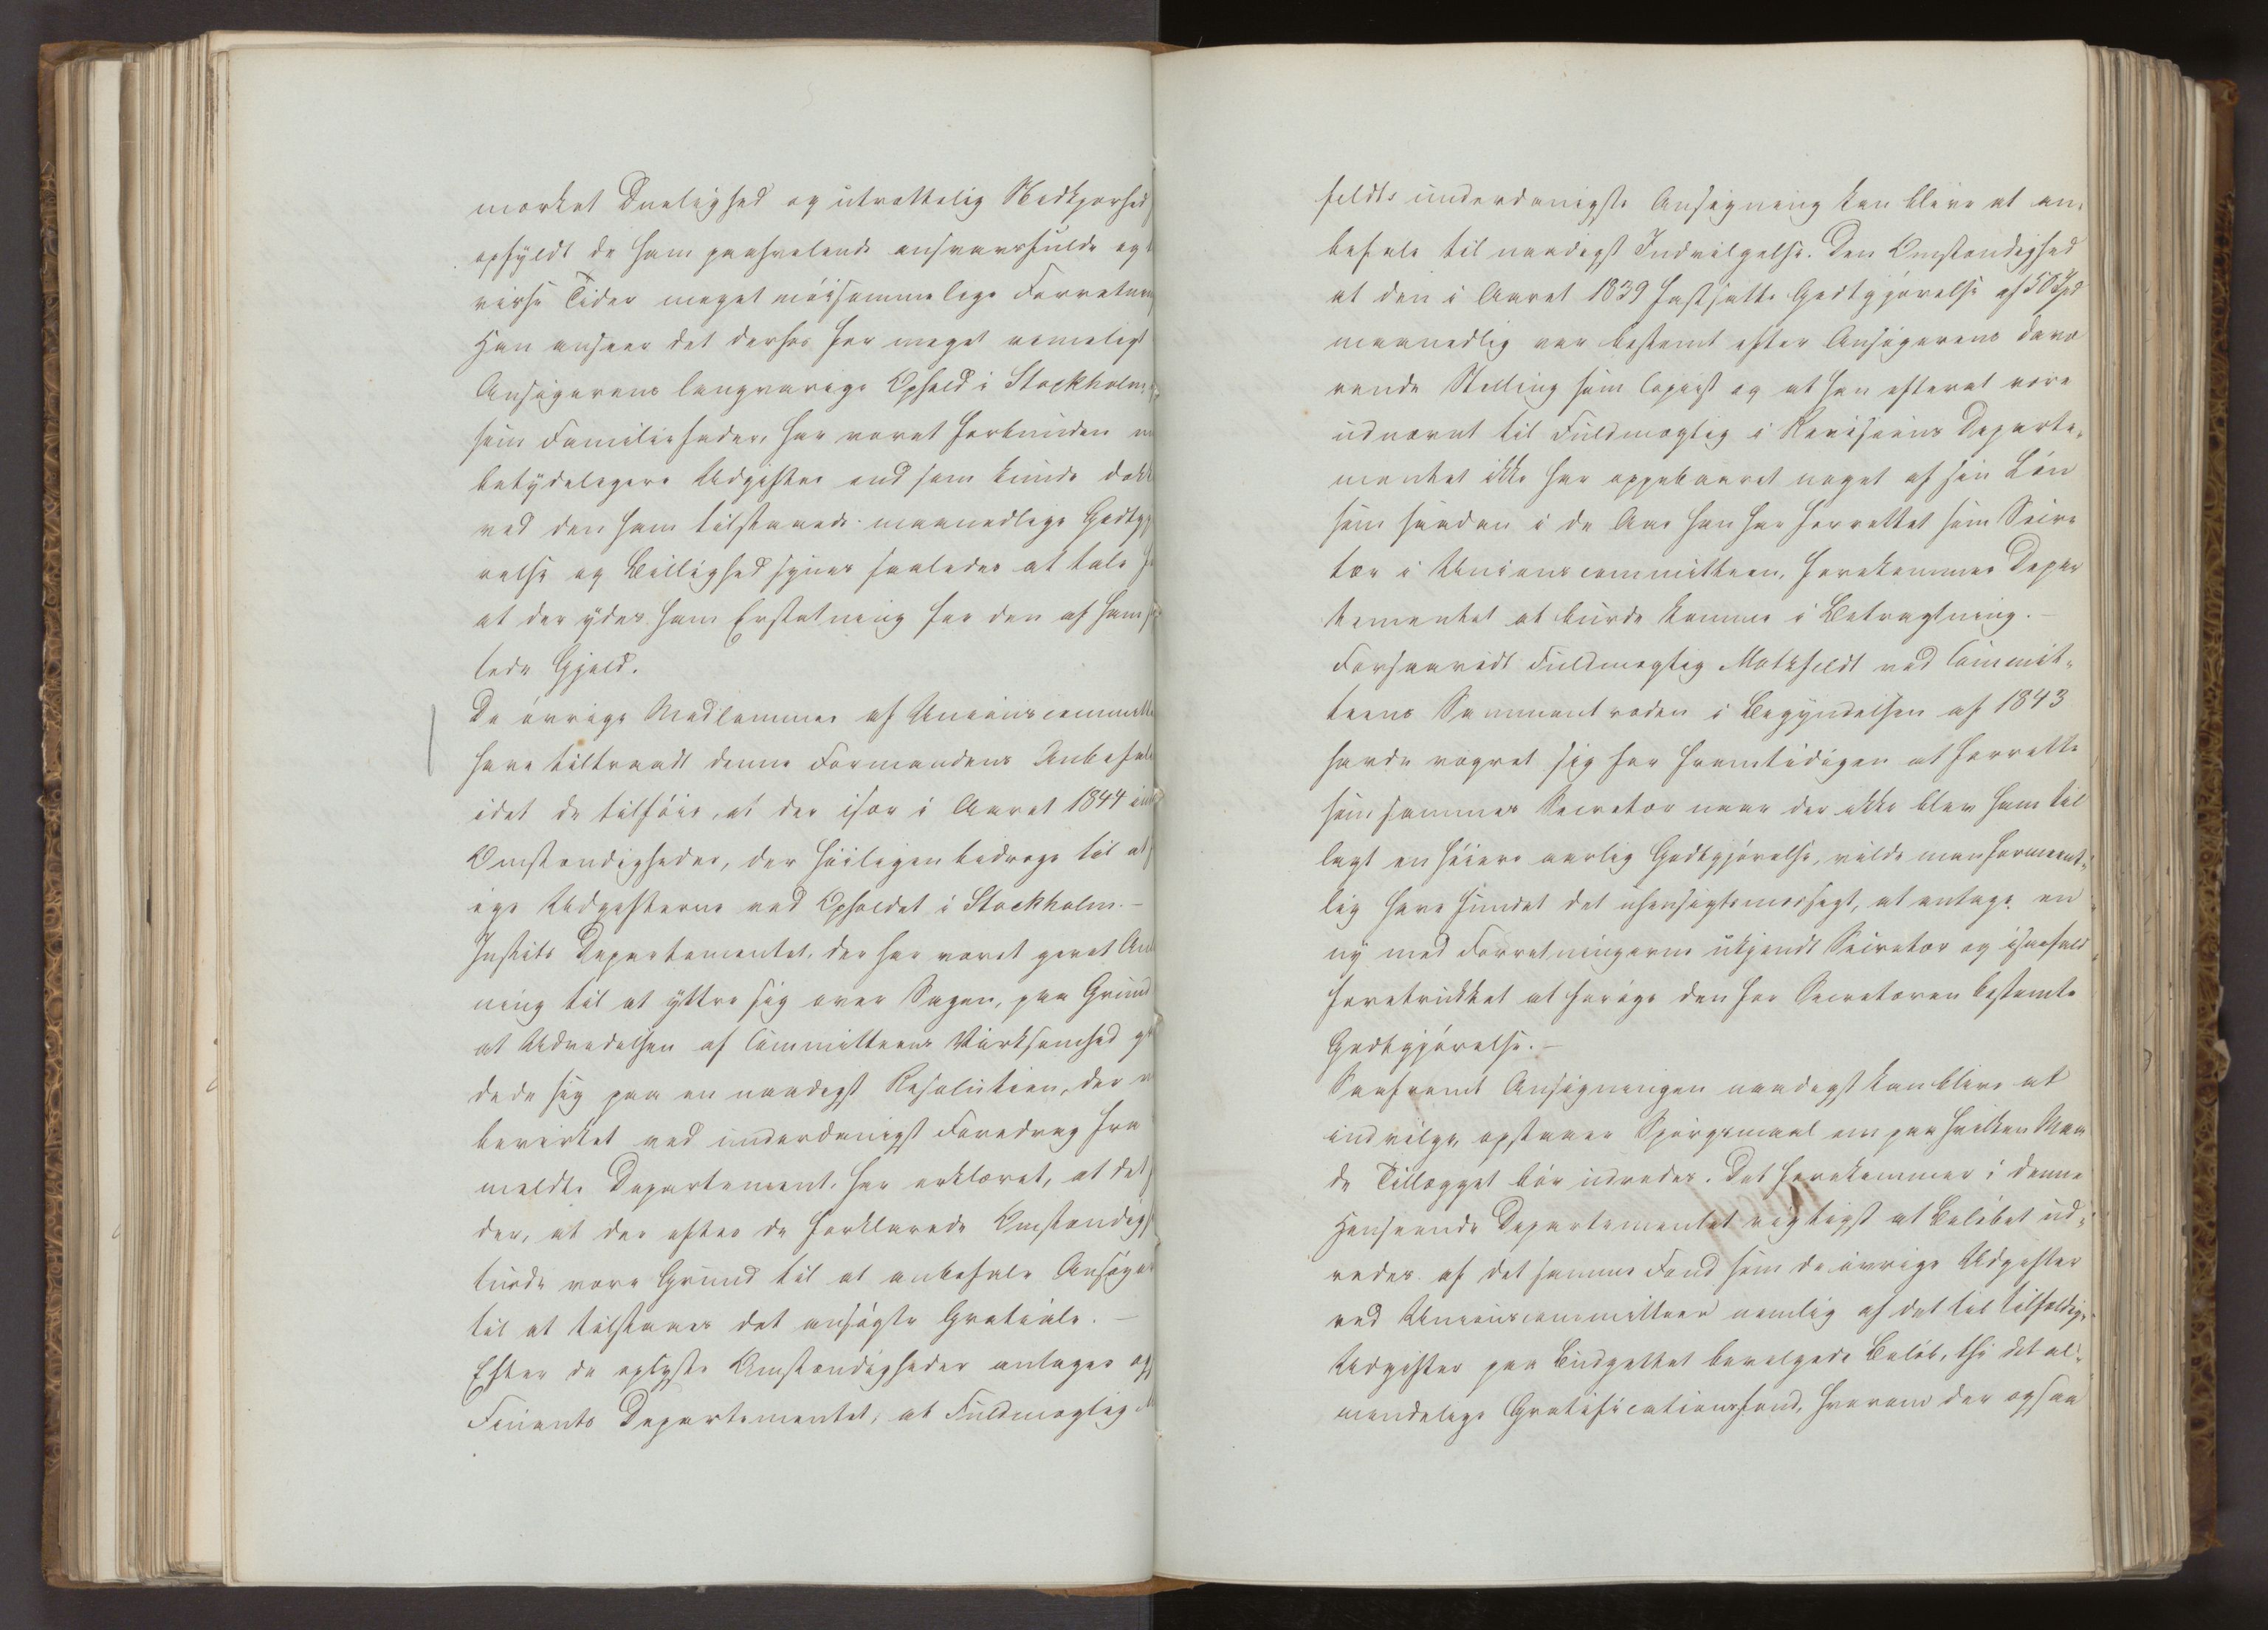 mærket Duelighed og utrættelig Virksomhed
opfyldt de ham paahvilende ansvarsfulde og
visse Tider meget møisommelige Forretnin
Han anseer det derhos for meget rimeligt
Ansøgerens langvarige Ophold i Stockholm
som Familiefader, har været forbunden m
betydeligere Udgifter end som kunde dækk
ved den ham tilstaaede maanedlige Godtgj
relse og Billighed synes saaledes at tale f
at der ydes ham Erstatning for den af ham
tede Gjæld.
De øvrige Medlemmer af Unionscommitte
have tiltraadt denne Formandens Anbefal
idet de tilføie, at der især i Aaret 1844 ind
Omstændigheder, der høiligen bidroge til at
øge Udgifterne ved Opholdet i Stockholm. –
Justits Departementet, der har været givet An
ning til at yttre sig over Sagen, paa Grund
at Udvidelsen af Committeens Virksomhed g
dede sig paa en naadigst Resolution, der v
bevirket ved underdanigst Foredrag fra
meldte Departement, har erklæret, at det
der, at der efter de forklarede Omstændig
turde være Grund til at anbefale Ansøge
til at tilstaaes det ansøgte Gratiale. –
Efter de oplyste Omstændigheder antager og
Finants Departementet, at Fuldmægtig M
feldts underdanigste Ansøgning kan blive at an-
befale til naadigst Indvilgelse. Den Omstændighed
at den i Aaret 1839 fastsatte Godtgjørelse af 50 Spd
maanedlig var bestemt efter Ansøgerens davæ
rende Stilling som Copiist og at han efterat være
udnævnt til Fuldmægtig i Revisions Departe-
mentet ikke har oppebaaret noget af sin Løn
som saadan i de Aar han har forrettet som Secre
tær i Unionscommitteen, forekommer Depar
tementet at burde komme i Betragtning. –
Forsaavidt Fuldmægtig Motzfeldt ved Commit-
teens Sammentræden i Begyndelsen af 1843
havde vægret sig for fremtidigen at forrette
som sammes Secretær naar der ikke blev ham til
lagt en høiere aarlig Godtgjørelse, vilde man forment-
lig have fundet det uhensigtsmæssigt, at antage en
ny med Forretningerne ukjendt Secretær og isaafald
foretrukket at forøge den for Secretæren bestemte
Godtgjørelse. –
Saafremt Ansøgningen naadigst kan blive at
indvilge, opstaaer Spørgsmaal om paa hvilken Maa
de Tillægget bør udredes. Det forekommer i denne
Henseende Departementet rigtigst at Beløbet ud-
redes af det samme Fond som de øvrige Udgifter
ved Unionscommitteen nemlig af det til tilfældige
Udgifter paa Budgettet bevilgede Beløb, thi det al-
mindelige Gratificationsfond, hvorom der ogsaa